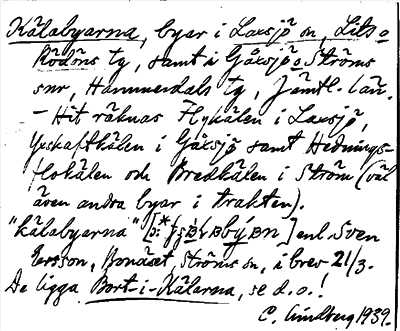 Kälabyarna, byar i Laxsjö sn, Lits o
Rödöns tg, samt i Gåxsjö o Ströms
snr, Hammerdals tg, Jämtl. län.
– Hit räknas Flykälen i Laxsjö,
Yxskaftkälen i Gåxsjö samt Hednings-
flokälen och Bredkälen i Ström (väl
även andra byar i trakten).
"Kälabyarna" enl. Sven
Persson, Bonäset, Ströms sn, i brev 21/3.
De ligga Bort-i-Kälarna, se d.o.!
C. Lindberg 1939.